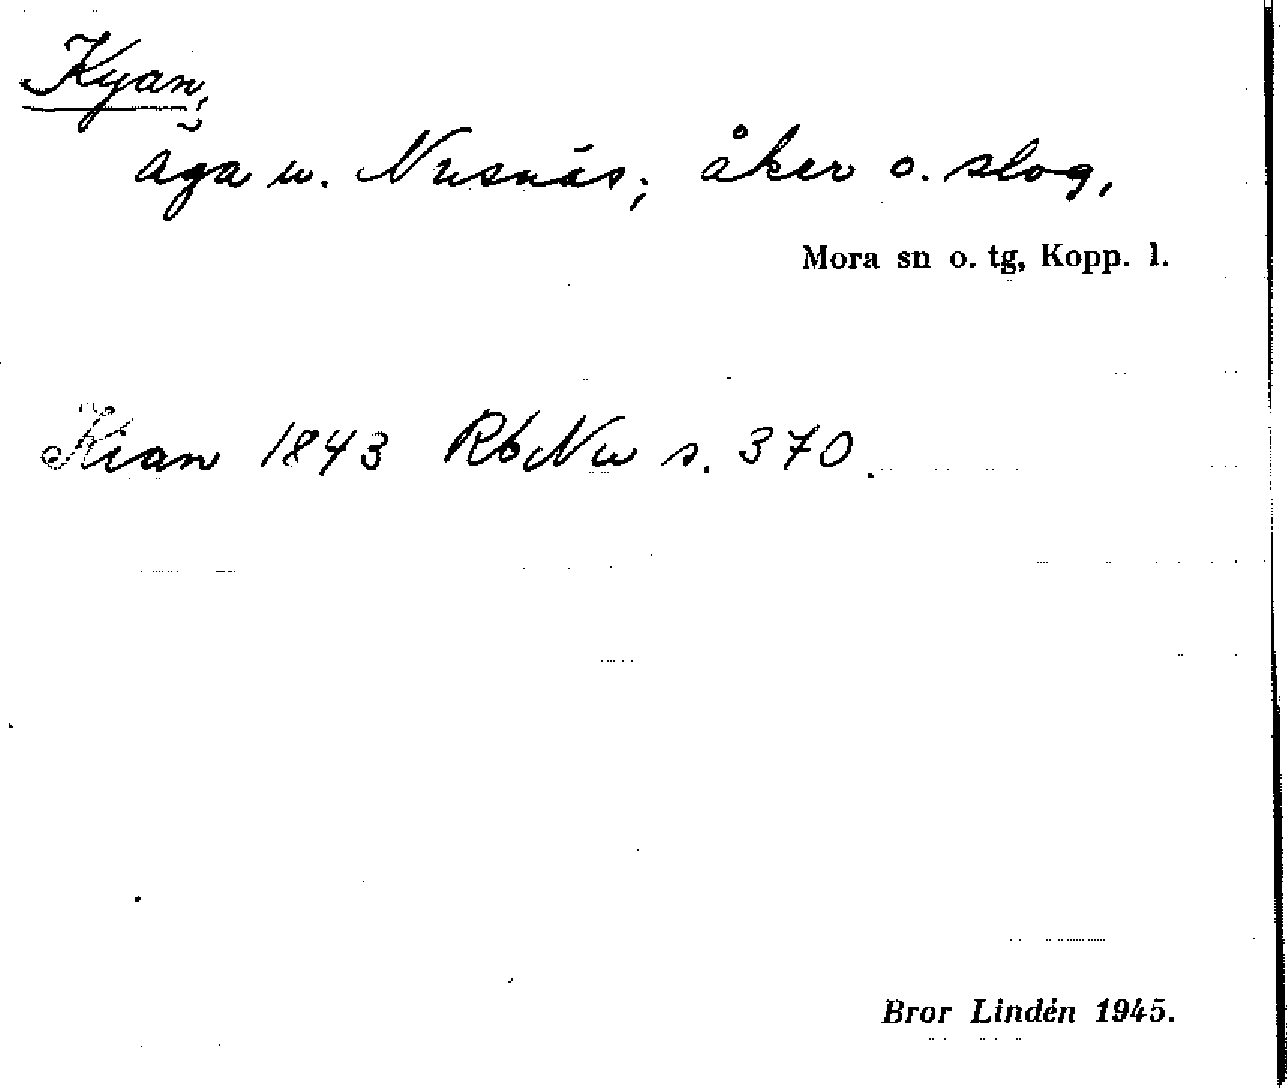 Kyan,
äga u. Nusnäs; åker o. slog,
Mora sn o. tg, Kopp. l.
Kian 1843 RbNu s. 370.
Bror Lindén 1945.